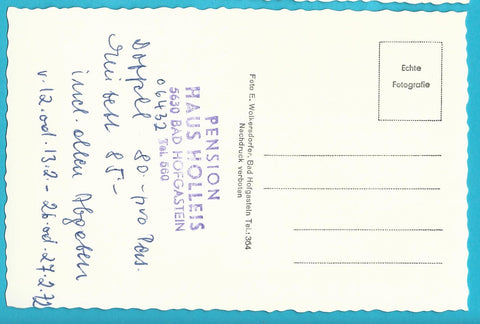 PENSION
HAUS HOLLEIS
5630 BAD HOFGASTEIN
06432 Tel. 660
Doppel 80.- pro Pers.
85.-
incl. allen Abgaben
v. 12. od. 13.2 - 26. od. 27.2.72
Foto E. Wolkersdorfer, Bad Hofgastein Tel.: 364
Nachdruck verboten
Echte
Fotografie